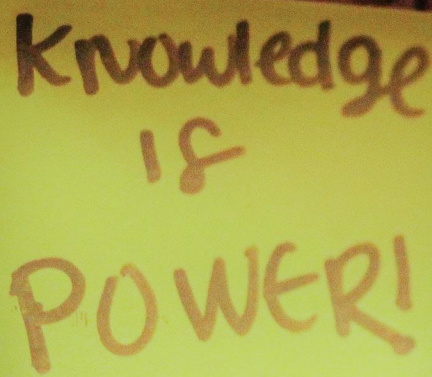 Knowledge
is
POWER!